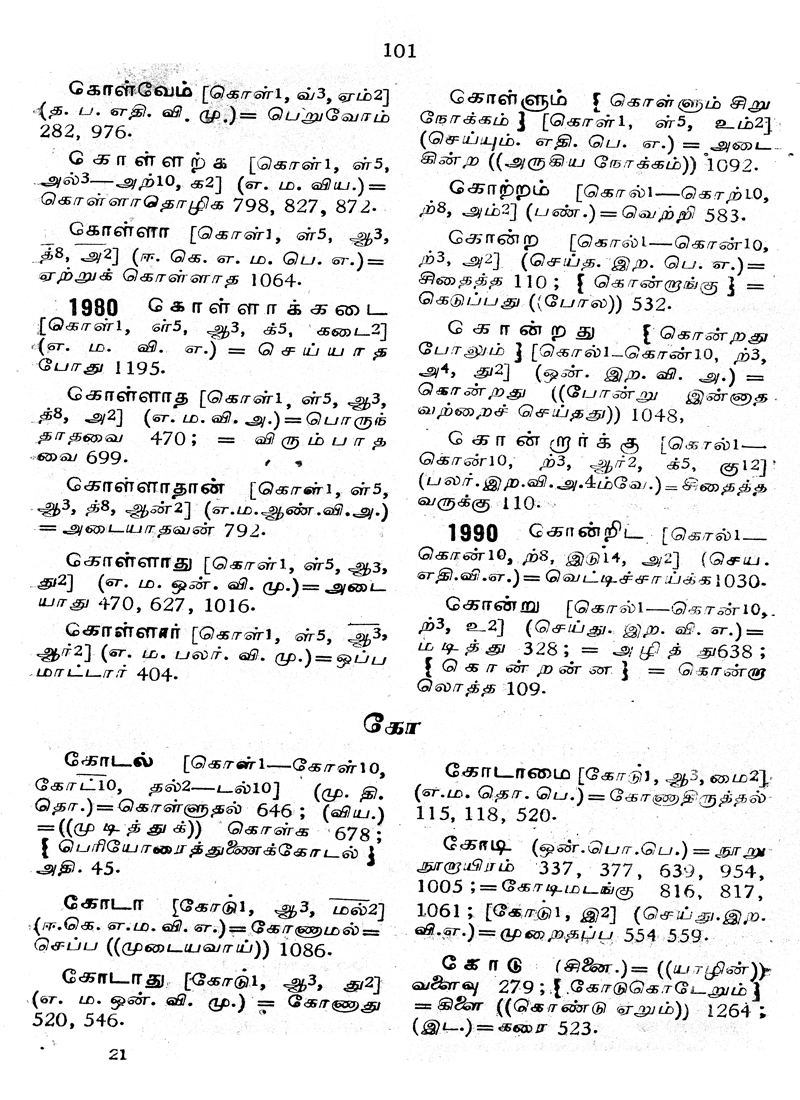 101
கொள்வேம் [கொள்1, வ்3, ஏம்2]
(த. ப. எதி. வி. மு.)= பெறுவோம்
282, 976.
கொள்ளற்க [கொள்1, ள்5,
அல்3—அற்10, க2] (எ. ம. விய.)=
கொள்ளாதொழிக 798, 827, 872.
கொள்ளா [கொள்1, ள்5, ஆ3,
த்8, அ2] (ஈ. கெ. எ. ம. பெ. எ.)=
ஏற்றுக் கொள்ளாத 1064.
1980 கொள்ளாக்கடை
[கொள்1, ள்5, ஆ3, க்5, கடை2]
(எ. ம. வி. எ.) = செய்யாத
போது 1195.
கொள்ளாத [கொள்1, ள்5, ஆ3,
த்8, அ2] (எ. ம. வி. அ.)=பொருந்
தாதவை 470; = விரும்பாத
வை 699.
கொள்ளாதான் [கொள்1, ள்5,
ஆ3, த்8, ஆன்2] (எ.ம.ஆண்.வி.அ.)
=அடையாதவன் 792.
கொள்ளாது [கொள்1, ள்5, ஆ3,
து2] (எ. ம. ஒன். வி. மு.)=அடை
யாது 470, 627, 1016.
கொள்ளார் [கொள்1, ள்5, ஆ3,
ஆர்2] (எ. ம. பலர். வி. மு.)=ஒப்ப
மாட்டார் 404.
கொள்ளும் { கொள்ளும் சிறு
நோக்கம் } [கொள்1, ள்5, உம்2]
(செய்யும். எதி. பெ. எ.) = அடை
கின்ற ((அருகிய நோக்கம்)) 1092.
கொற்றம் [கொல்1—கொற்10,
ற்8, அம்2] (பண்.)=வெற்றி 583.
கொன்ற [கொல்1—கொன்10,
ற்3, அ2] (செய்த. இற. பெ. எ.)=
சிதைத்த 110; { கொன்றாங்கு } =
கெடுப்பது ((போல)) 532.
கொன்றது { கொன்றது
போலும் } [கொல்1–கொன்10, ற்3,
அ4, து2] (ஒன். இற. வி. அ.) =
கொன்றது ((போன்று இன்னாத
வற்றைச் செய்தது)) 1048,
கொன்றார்க்கு [கொல்1—
கொன்10, ற்3, ஆர்2, க்5, கு12]
(பலர்.இற.வி.அ.4ம்வே.)=சிதைத்த
வருக்கு 110.
1990 கொன்றிட [கொல்1—
கொன்10, ற்8, இடு14, அ2] (செய.
எதி.வி.எ.)=வெட்டிச்சாய்க்க1030.
கொன்று [கொல்1—கொன்10,
ற்3, உ2] (செய்து. இற. வி. எ.)=
மடித்து 328; = அழித் து638;
{ கொன்றன்ன } = கொன்றா
லொத்த 109.
கோ
கோடல் [கொள்1—கோள்10,
கோட்10, தல்2—டல்10] (மு. தி.
தொ.)=கொள்ளுதல் 646; (விய.)
=((முடித்துக்)) கொள்க 678;
{ பெரியோரைத்துணைக்கோடல் }
அதி. 45.
கோடா [கோடு1, ஆ3, மல்2]
(ஈ.கெ. எ.ம. வி. எ.)=கோணாமல்=
செப்ப ((முடையவாய்)) 1086.
கோடாது [கோடு1, ஆ3, து2]
(எ. ம. ஒன். வி. மு.) = கோணாது
520, 546.
கோடாமை [கோடு1, ஆ3, மை2]
(எ.ம. தொ. பெ.)=கோணாதிருத்தல்
115, 118, 520.
கோடி (ஒன்.பொ.பெ.)=நூறு
நூறாயிரம் 337, 377, 639, 954,
1005;=கோடிமடங்கு 816, 817,
1061; [கோடு1, இ2] (செய்து.இற.
வி.எ.)=முறைதப்ப 554 559.
கோடு (சினை.)= ((யாழின்))
வளைவு 279; { கோடுகொடேறும் }
=கிளை ((கொண்டு ஏறும்)) 1264;
(இட.)=கரை 523.
21